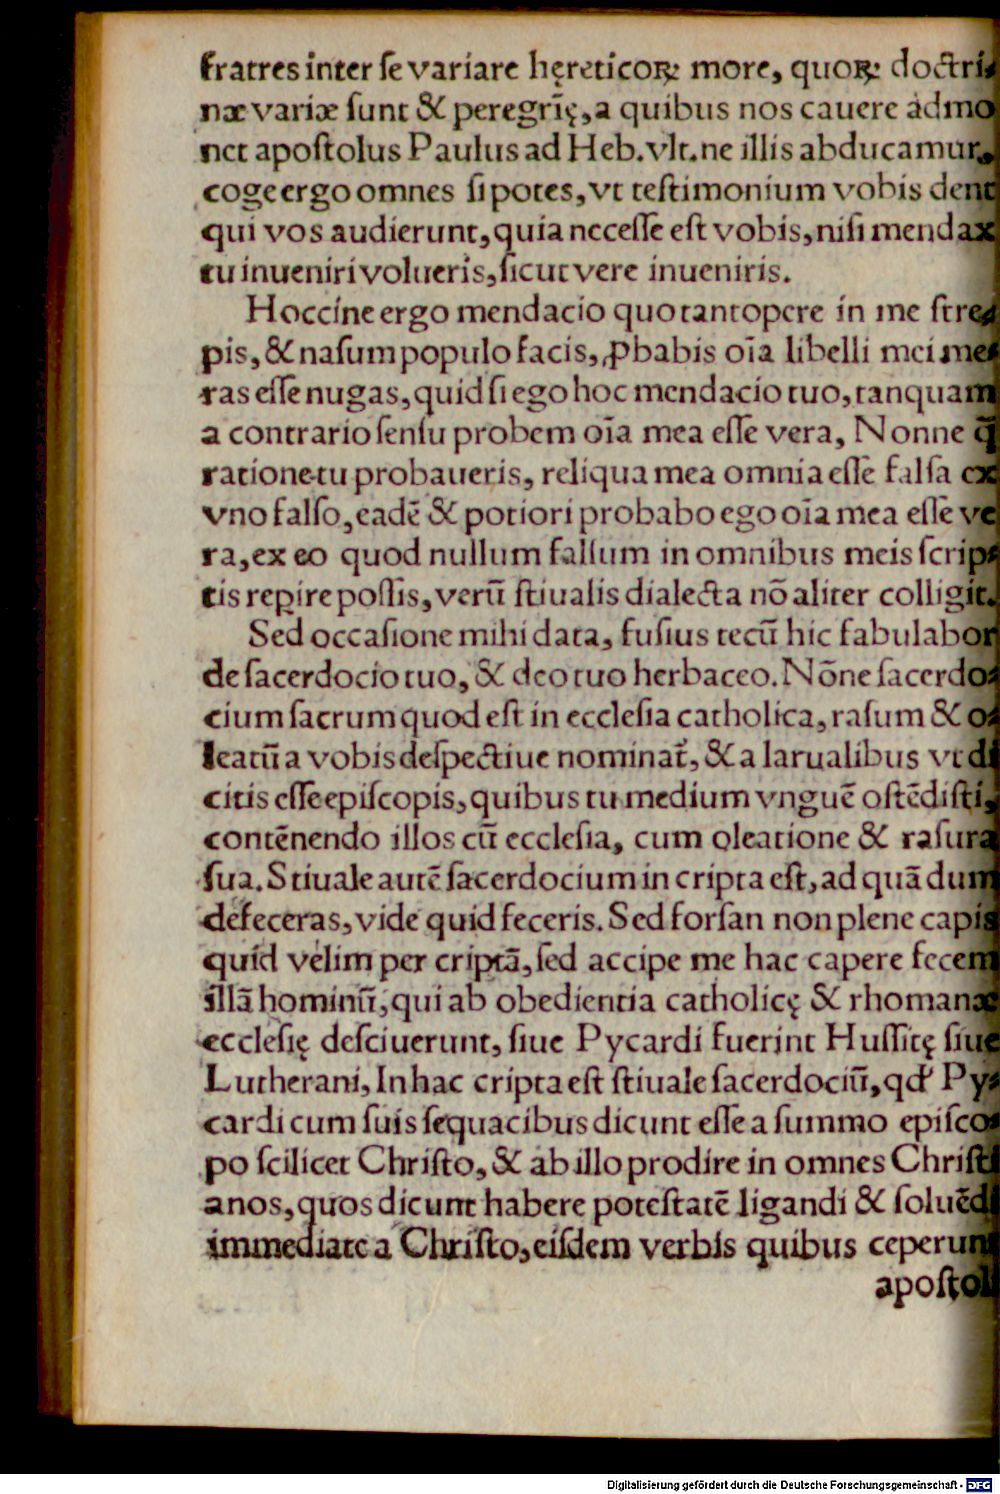 fratres inter se variare hęreticoꝝ more, quoꝝ doctri-
næ variæ sunt & peregrīę, a quibus nos cauere admo
net apostolus Paulus ad Heb. vlt. ne illis abducamur.
coge ergo omnes si potes, vt testimonium vobis dent
qui vos audierunt, quia necesse est vobis, nisi mendax
tu inueniri volueris, sicut vere inueniris.
Hoccine ergo mendacio quo tantopere in me stre-
pis, & nasum populo facis, ꝓbabis oīa libelli mei me-
ras esse nugas, quid si ego hoc mendacio tuo, tanquam
a contrario sensu probem oīa mea esse vera, Nonne q̃
ratione tu probaueris, reliqua mea omnia esse falsa ex
vno falso, eadē & potiori probabo ego oīa mea esse ve
ra, ex eo quod nullum falsum in omnibus meis scrip-
tis reꝑire possis, verū stiualis dialecta nō aliter colligit.
Sed occasione mihi data, fusius tecū hic fabulabor
de sacerdocio tuo, & deo tuo herbaceo. Nōne sacerdo-
cium sacrum quod est in ecclesia catholica, rasum & o-
leatū a vobis despectiue nominat̃, & a larualibus vt di
citis esse episcopis, quibus tu medium vnguē ostēdisti,
contēnendo illos cū ecclesia, cum oleatione & rasura
sua. Stiuale autē sacerdocium in cripta est, ad quā dum
defeceras, vide quid feceris. Sed forsan non plene capis
quid velim per criptā, sed accipe me hac capere fecem
illā hominū, qui ab obedientia catholicę & rhomanæ
ecclesię desciuerunt, siue Pycardi fuerint Hussitę siue
Lutherani, In hac cripta est stiuale sacerdociū, qd' Py-
cardi cum suis sequacibus dicunt esse a summo episco-
po scilicet Christo, & ab illo prodire in omnes Christi
anos, quos dicunt habere potestatē ligandi & soluēdi
immediate a Christo, eisdem verbis quibus ceperunt
apostoli
Digitalisierung gefördert durch die Deutsche Forschungsgemeinschaft - DFG